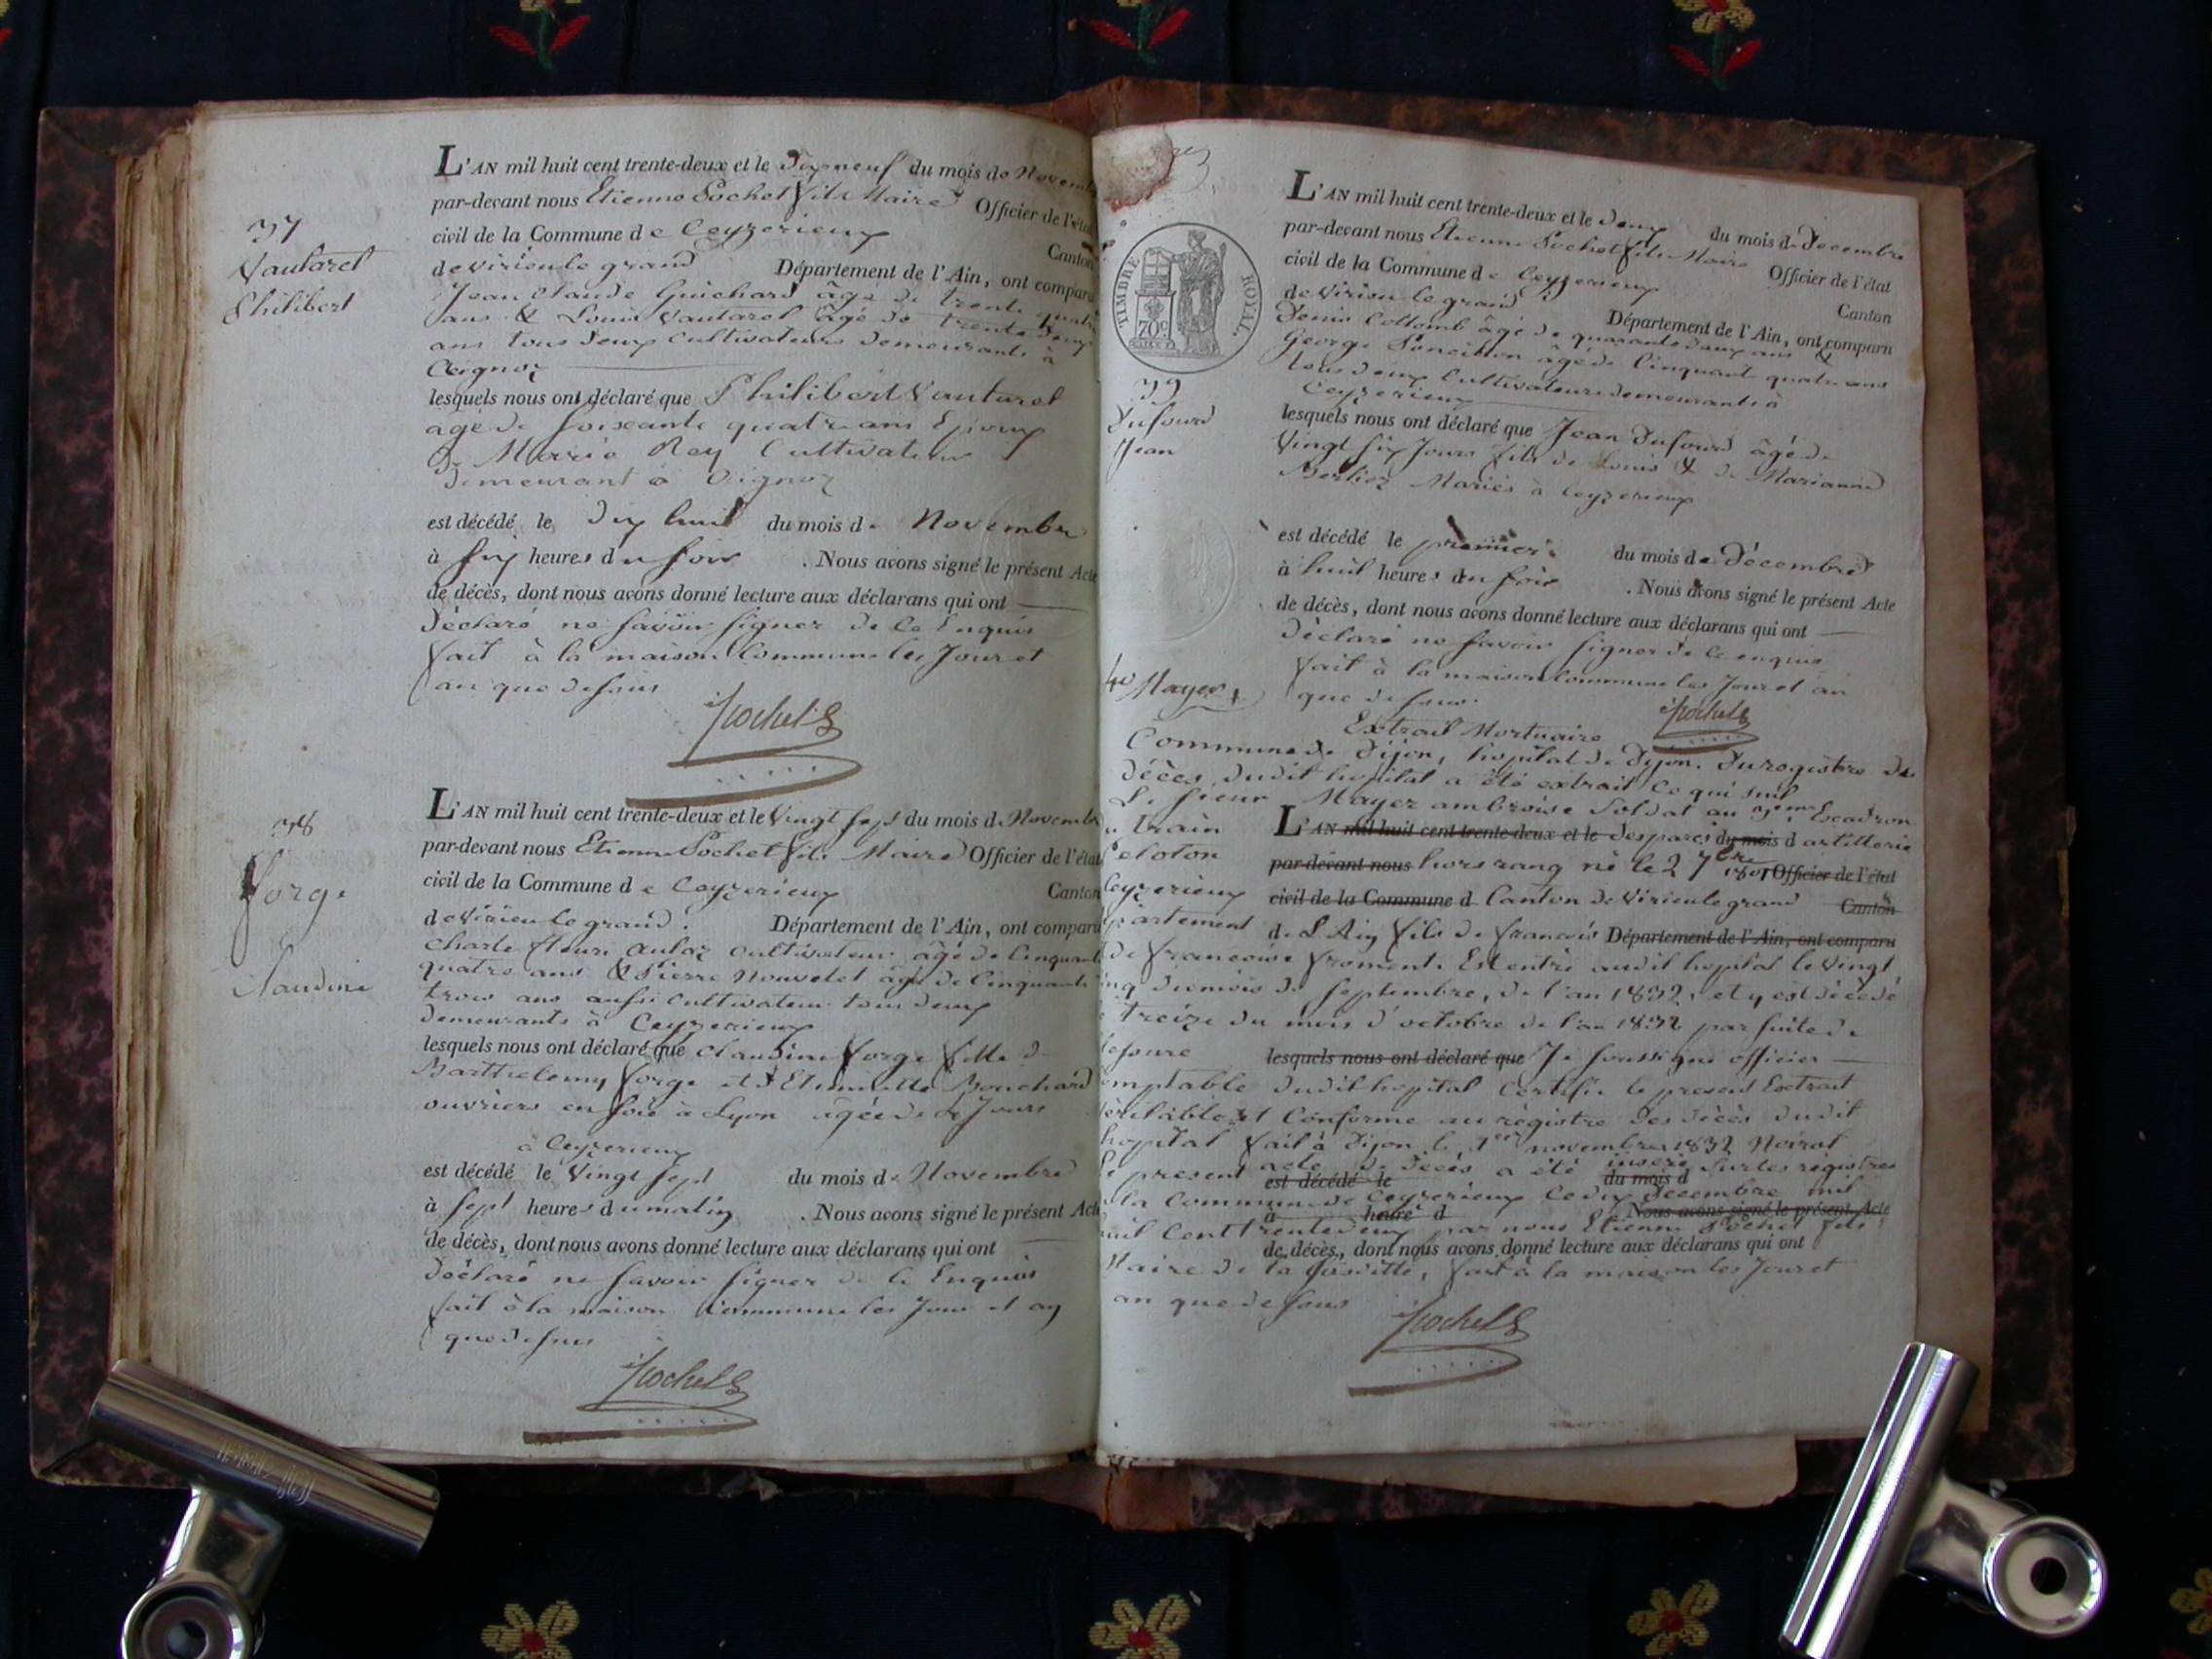 37
Vautaret
Philibert
L'AN mil huit cent trente-deux et le Dixneuf du mois de Novemb
par-devant nous Etienne Pochet fils Maire Officier de l'éta
civil de la Commune de Ceyzerieux
Canton
de virieu le grand Département de l'Ain, ont comparu
Jean Claude Guichard âgé de trente quatre
ans & Louis Vautaret âgé de trente deux
ans tous deux Cultivateurs demeurants à
Avignoz
lesquels nous ont déclaré que Philibert Vautaret
âgé de soixante quatre ans Epoux
De Marie Rey Cultivateur
Demeurant à
est décédé le dix huit du mois de Novembre
à six heures du soir . Nous avons signé le présent Acte
de décès, dont nous avons donné lecture aux déclarans qui ont
Déclaré ne savoir signer de ce Enquis
fait à la maison Commune les Jour et
an que dessus
Pochet
38
Forge
Claudine
L'AN mil huit cent trente-deux et le Vingt sept du mois de Novemb
par-devant nous Etienne Pochet fils Maire Officier de l'éta
civil de la Commune de Ceyzerieux Canton
de virieu le grand. Département de l'Ain, ont comparu
Charle fleuri cultivateur âgé de Cinquante
quatre ans & Pierre Nouvelet âgé de Cinquante
trois ans aussi cultivateur tous deux
Demeurants à Ceyzerieux
lesquels nous ont déclaré que Claudine forge fille de
Barthelemy forge et d'Etiennette Bouchard
ouvriers en soie à Lyon âgée de Jours
à Ceyzerieux
est décédé le Vingt sept du mois de Novembre
à sept heures du matin . Nous avons signé le présent Acte
de décès, dont nous avons donné lecture aux déclarans qui ont
Déclaré ne savoir signer de ce Enquis
fait à la maison Commune les Jour et an
que dessus
Pochet
TIMBRE ROYAL.
70c
39
Dufourd
Jean
L'AN mil huit cent trente-deux et le Deux du mois de Decembre
par-devant nous Etienne Pochet fils Maire Officier de l'état
civil de la Commune de Ceyzerieux
Canton
de Virieu le grand Département de l'Ain, ont comparu
Denis Collomb âgé de quarante deux ans &
George Poncillon âgé de Cinquante quatre ans
tous deux Cultivateurs demeurants à
Ceyzerieux
lesquels nous ont déclaré que Jean Dufourd âgé de
Vingt six Jours fils de Louis & de Marianne
Berliez Mariés à Ceyzerieux
est décédé le premier du mois de Décembre
à huit heures du soir . Nous avons signé le présent Acte
de décès, dont nous avons donné lecture aux déclarans qui ont
Déclaré ne savoir signer de ce enquis
fait à la maison Commune les Jour et an
que dessus.
Pochet
40 Mayer
Extrait Mortuaire
Commune de Dijon, hopital de Dijon. Du registre de
Décès dudit hopital a été extrait ce qui suit
Le sieur Mayer ambroise Soldat au 3eme Escadron
u train L'AN mil huit cent trente-deux et le des parcs du mois d artillerie
Peloton par-devant nous hors rang né le 27 1807 Officier de l'état
Ceyzerieux civil de la Commune d Canton de Virieu le grand Canton
partement de l'Ain fils de francois Département de l'Ain, ont comparu
De francoise froment. Est entré audit hopital le vingt
inq du mois de septembre, de l'an 1832, et y est décédé
treize du mois d'octobre de l'an 1832 par suite de
lesquels nous ont déclaré que Je soussigné officier
omptable dudit hopital Certifie le present Extrait
véritable et Conforme au régistre des décès dudit
hopital fait à Dijon le 1er novembre 1832 Noirot
le present acte de Décès a été inseré sur les régistres
est décédé le du mois d
de la Commune de Ceyzerieux Ce dix Decembre mil
a heure d Nous avons signé le présent Acte
huit Cent trente deux par nous Etienne Pochet fils
de décès, dont nous avons donné lecture aux déclarans qui ont
Maire de la susditte, fait à la maison les Jour et
an que dessus
Pochet